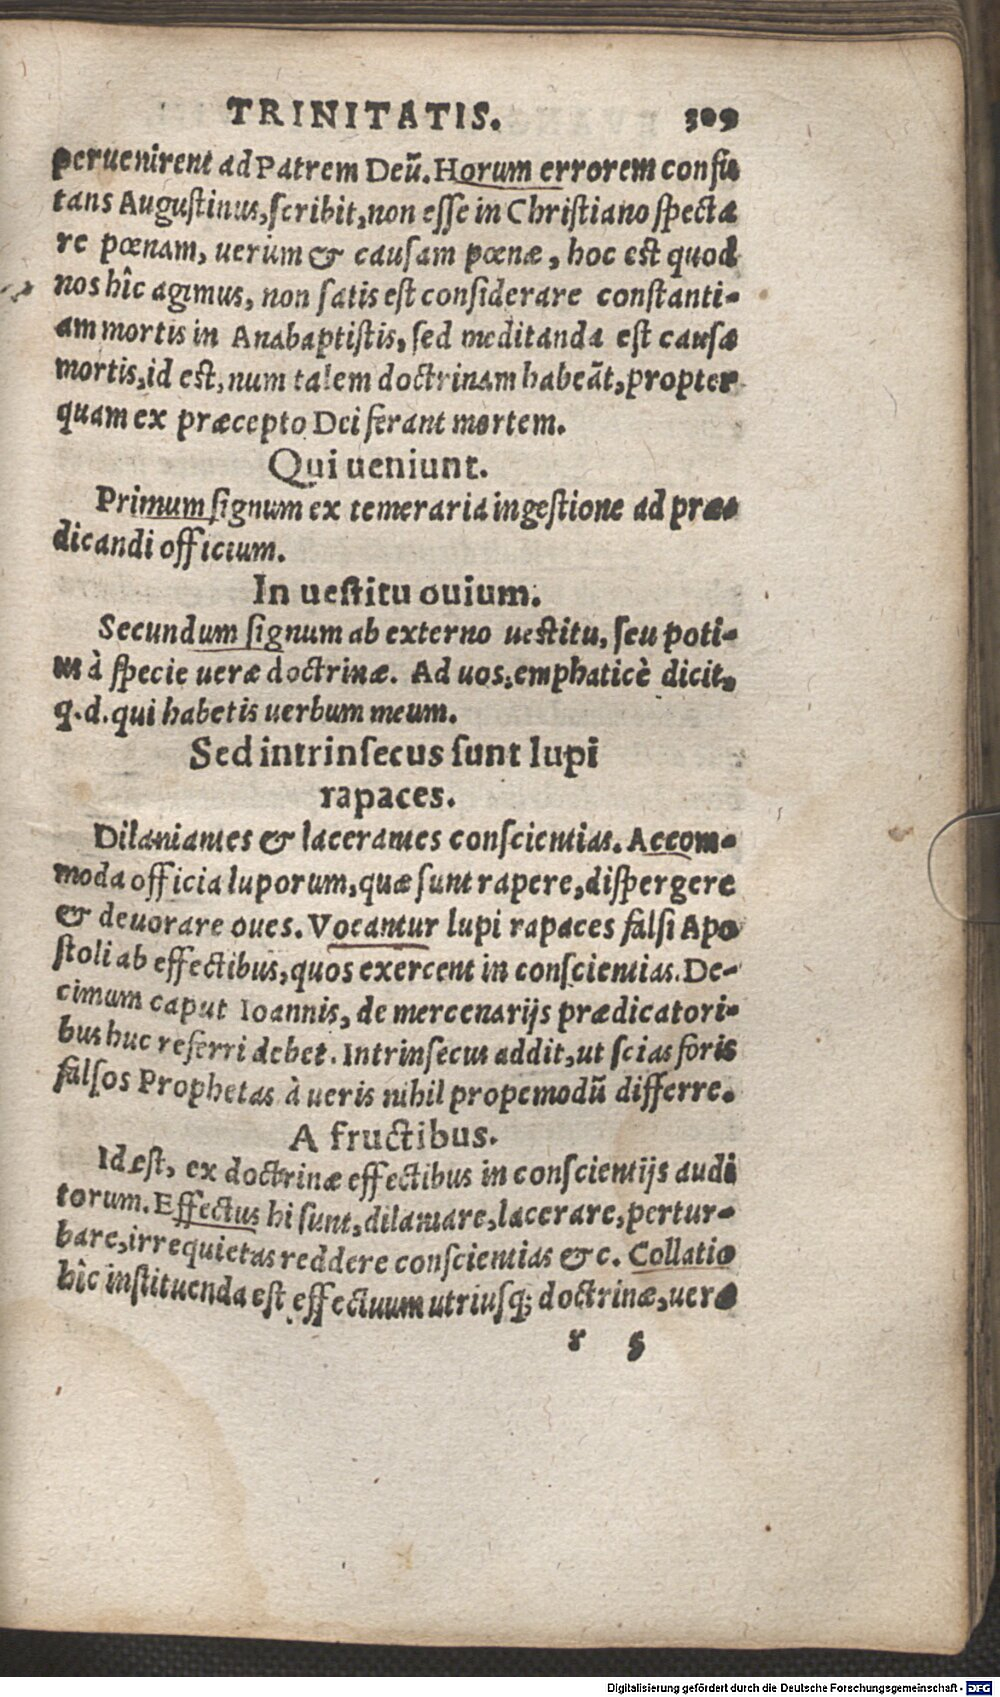 TRINITATIS. 309
peruenirent ad Patrem Deū. Horum errorem confu
tans Augustinus, scribit, non esse in Christiano specta
re pœnam, uerùm & causam pœnæ, hoc est quod
nos hîc agimus, non satis est considerare constanti-
am mortis in Anabaptistis, sed meditanda est causa
mortis, id est, num talem doctrinam habeāt, propter
quam ex præcepto Dei ferant mortem.
Qui ueniunt.
Primum signum ex temeraria ingestione ad præ-
dicandi officium.
In uestitu ouium.
Secundum signum ab externo uestitu, seu poti-
us à specie ueræ doctrinæ. Ad uos, emphaticè dicit,
q.d. qui habetis uerbum meum.
Sed intrinsecus sunt lupi
rapaces.
Dilaniantes & lacerantes conscientias. Accom-
moda officia luporum, quæ sunt rapere, dispergere
& deuorare oues. Vocantur lupi rapaces falsi Apo
stoli ab effectibus, quos exercent in conscientias. De-
cimum caput Ioannis, de mercenarijs prædicatori-
bus huc referri debet. Intrinsecus addit, ut scias foris
falsos Prophetas à ueris nihil propemodū differre.
A fructibus.
Id est, ex doctrinæ effectibus in conscientijs audi
torum. Effectus hi sunt, dilaniare, lacerare, pertur-
bare, irrequietas reddere conscientias &c. Collatio
hîc instituenda est effectuum utriusq; doctrinæ, ueræ
r 5
Digitalisierung gefördert durch die Deutsche Forschungsgemeinschaft - DFG